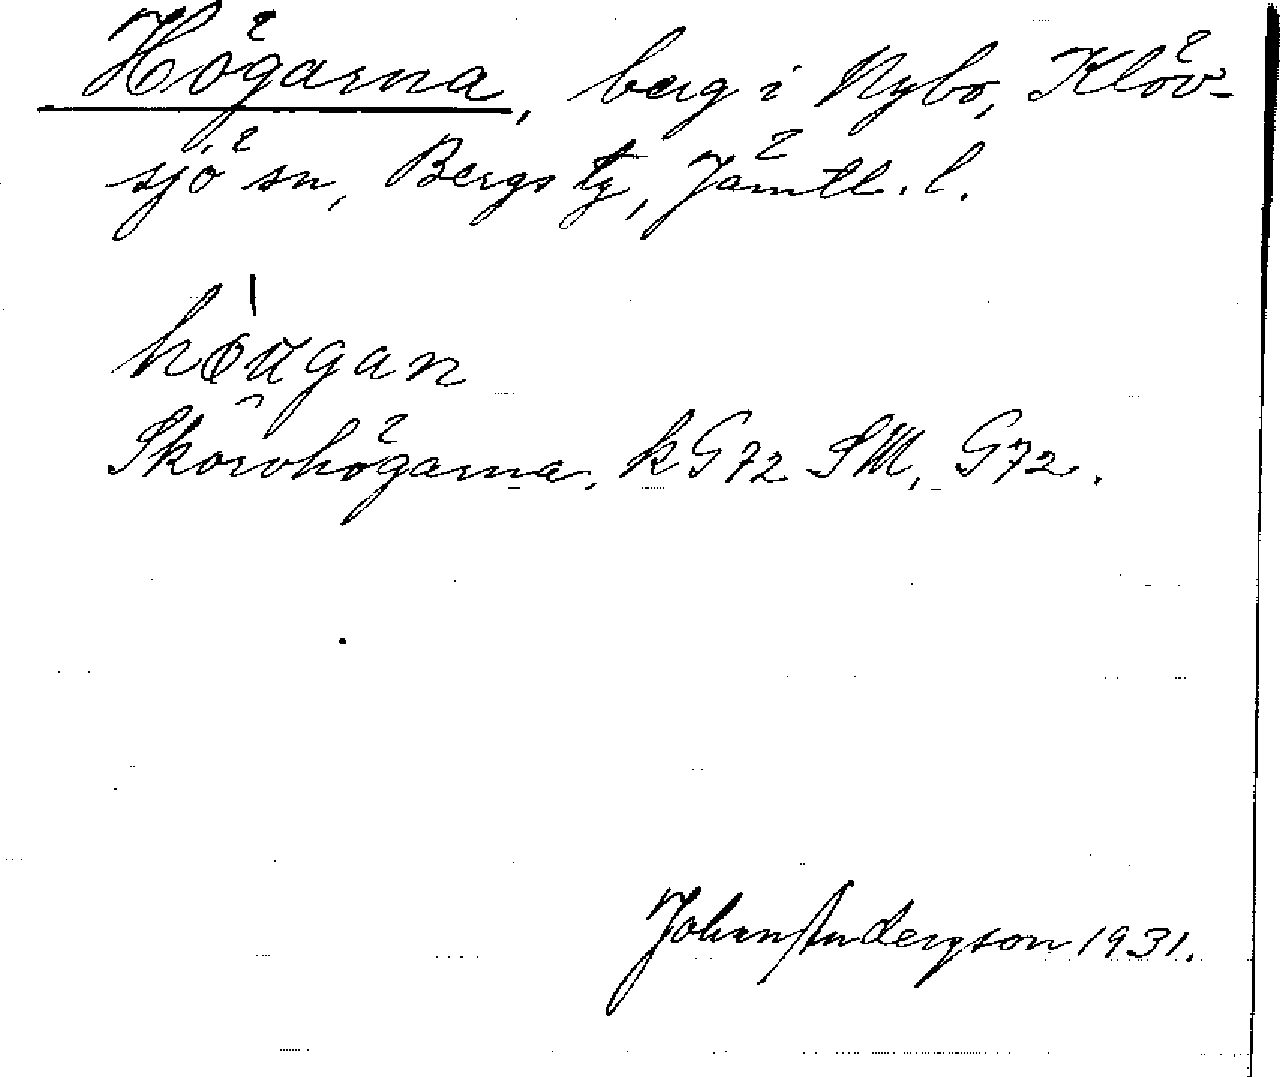 Högarna, berg i Nybo, Klöv-
sjö sn, Bergs tg, Jämtl. l.
höugan
Skörvhögarna, k G72 SM, G72.
Johan Andersson 1931.